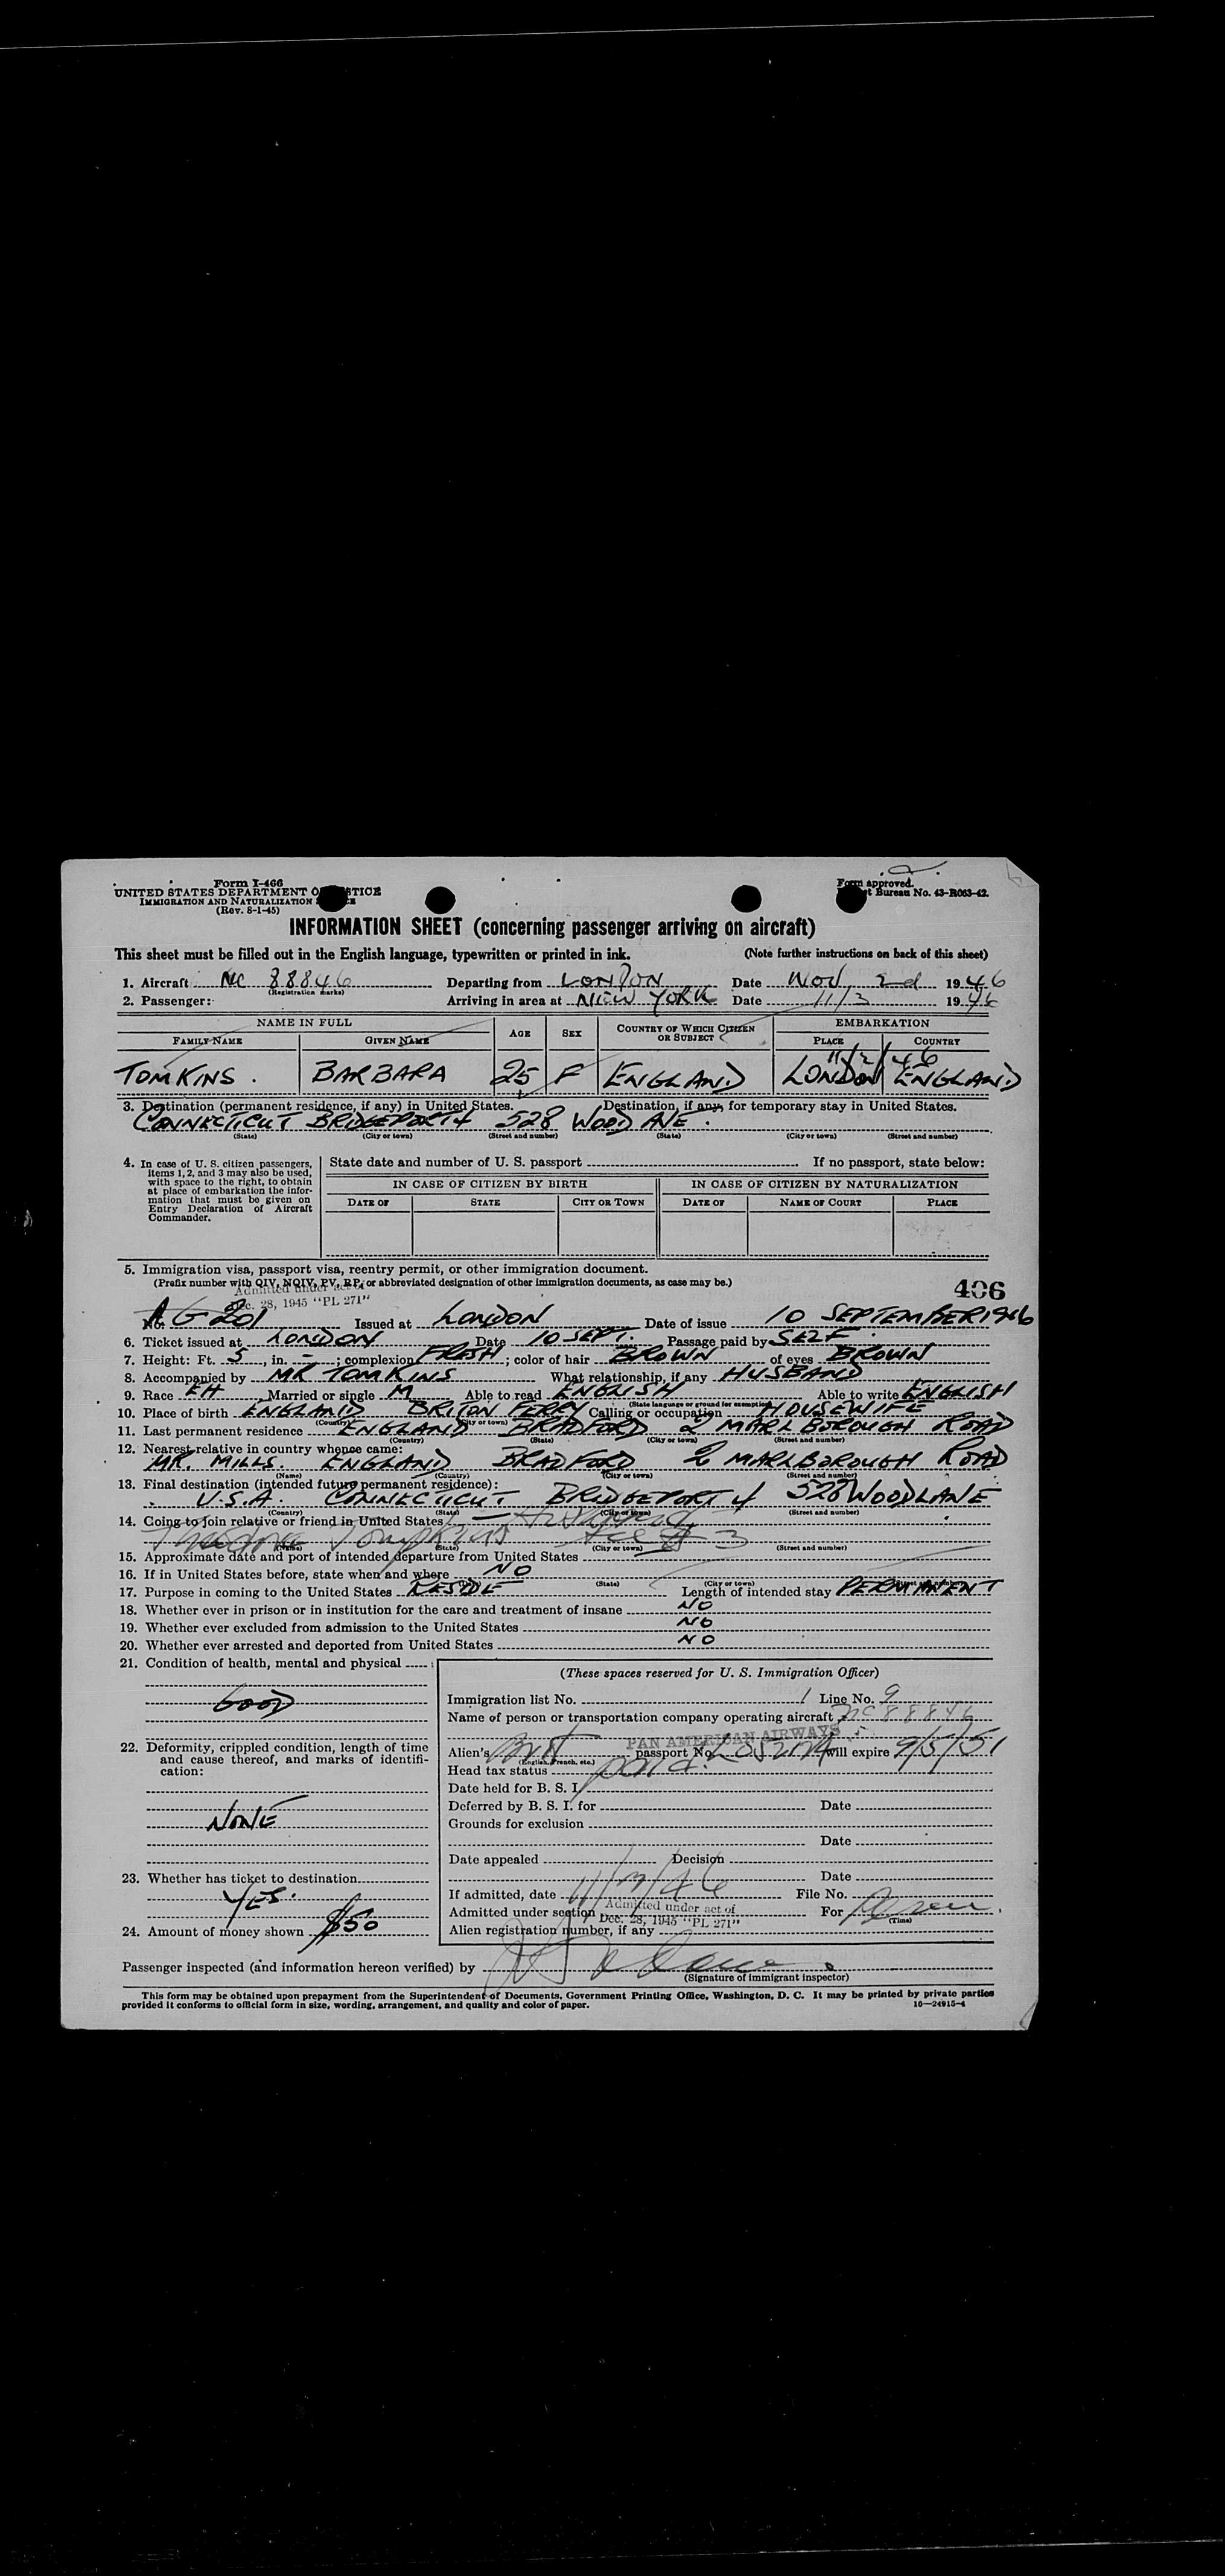 Form I-466
UNITED STATES DEPARTMENT O STICE
IMMIGRATION AND NATURALIZATION
(Rev. 8-1-45)
Form approved.
t Bureau No. 43-R063-42.
INFORMATION SHEET (concerning passenger arriving on aircraft)
This sheet must be filled out in the English language, typewritten or printed in ink. (Note further instructions on back of this sheet)
1. Aircraft NC 88846 Departing from LONDON Date Nov, 2d 1946
(Registration marks)
2. Passenger: Arriving in area at NEW YORK Date 11/3 1946
NAME IN FULL AGE SEX COUNTRY OF WHICH CITIZEN OR SUBJECT EMBARKATION
FAMILY NAME GIVEN NAME PLACE COUNTRY
11/2/46
TOMKINS. BARBARA 25 F ENGLAND LONDON ENGLAND
3. Destination (permanent residence, if any) in United States. Destination, if any, for temporary stay in United States.
CONNECTICUT BRIDGEPORT 4 528 WOOD AVE.
(State) (City or town) (Street and number) (State) (City or town) (Street and number)
4. In case of U. S. citizen passengers, items 1, 2, and 3 may also be used, with space to the right, to obtain at place of embarkation the information that must be given on Entry Declaration of Aircraft Commander.
State date and number of U. S. passport If no passport, state below:
IN CASE OF CITIZEN BY BIRTH IN CASE OF CITIZEN BY NATURALIZATION
DATE OF STATE CITY OR TOWN DATE OF NAME OF COURT PLACE
5. Immigration visa, passport visa, reentry permit, or other immigration document.
(Prefix number with QIV, NQIV, PV, RP, or abbreviated designation of other immigration documents, as case may be.) 406
Admitted under act of
Dec. 28, 1945 "PL 271"
No. AG 201 Issued at LONDON Date of issue 10 SEPTEMBER 1946
6. Ticket issued at LONDON Date 10 SEPT. Passage paid by SELF.
7. Height: Ft. 5, in. -; complexion FRESH; color of hair BROWN of eyes BROWN
8. Accompanied by MR TOMKINS What relationship, if any HUSBAND
9. Race EH Married or single M Able to read ENGLISH Able to write ENGLISH
(State language or ground for exemption)
10. Place of birth ENGLAND BRITON FERRY Calling or occupation HOUSEWIFE
(Country) (City or town)
11. Last permanent residence ENGLAND BRADFORD 2 MARLBOROUGH ROAD
(Country) (State) (City or town) (Street and number)
12. Nearest relative in country whence came:
MR. MILLS. ENGLAND BRADFORD 2 MARLBOROUGH ROAD
(Name) (Country) (City or town) (Street and number)
13. Final destination (intended future permanent residence):
U.S.A. CONNECTICUT BRIDGEPORT 4 528 WOODLANE
(Country) (State) (City or town) (Street and number)
14. Going to join relative or friend in United States - Husband
Theodore Tompkins see # 3
(Name) (State) (City or town) (Street and number)
15. Approximate date and port of intended departure from United States
16. If in United States before, state when and where NO
(State) (City or town) (Street and number)
17. Purpose in coming to the United States RESIDE Length of intended stay PERMANENT
18. Whether ever in prison or in institution for the care and treatment of insane NO
19. Whether ever excluded from admission to the United States NO
20. Whether ever arrested and deported from United States NO
21. Condition of health, mental and physical
GOOD
22. Deformity, crippled condition, length of time and cause thereof, and marks of identification:
NONE
23. Whether has ticket to destination
YES.
24. Amount of money shown $50
(These spaces reserved for U. S. Immigration Officer)
Immigration list No. 1 Line No. 9
Name of person or transportation company operating aircraft NC 88846
PAN AMERICAN AIRWAYS
Alien's Brit passport No. will expire 9/5/51
(English, French, etc.)
Head tax status paid.
Date held for B. S. I.
Deferred by B. S. I. for Date
Grounds for exclusion
Date
Date appealed Decision
Date
If admitted, date 11/3/46 File No.
Admitted under section Admitted under act of Dec. 28, 1945 "PL 271" For Perm.
(Time)
Alien registration number, if any
Passenger inspected (and information hereon verified) by
(Signature of immigrant inspector)
This form may be obtained upon prepayment from the Superintendent of Documents, Government Printing Office, Washington, D. C. It may be printed by private parties
provided it conforms to official form in size, wording, arrangement, and quality and color of paper. 16—24915-4